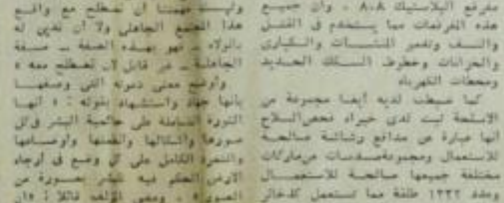 مفرقع البلاستيك ٨٠٨ ، وان جميع
هذه المفرقعات مما يستخدم في القتل
والنسف وتدمير المنشآت والكبارى
والخزانات وخطوط السكك الحديد
ومحطات الكهرباء
كما ضبطت لديه أيضا مجموعة من
الاسلحة ثبت لدى خبراء فحص السلاح
انها عبارة عن مدافع رشاشة صالحة
للاستعمال ومجموعة مسدسات من ماركات
مختلفة جميعها صالحة للاستعمال
وعدد ١٣٢٢ طلقة مما تستعمل كذخائر
وليست مهمتنا ان نصطلح مع واقع
هذا المجتمع الجاهلى ولا أن ندين له
بالولاء فهو بهذه الصفة ــ صفة
الجاهلية ــ غير قابل لان نصطلح معه »
وأوضح معنى دعوته التى وصفها
بأنها جهاد واستشهاد بقوله : « انها
الثورة الشاملة على حاكمية البشر في كل
صورها وأشكالها وأنظمتها وأوضاعها
والتمرد الكامل على كل وضع في أرجاء
الارض الحكم فيه للبشر بصورة من
الصور » . ومضى المؤلف قائلا : « ان